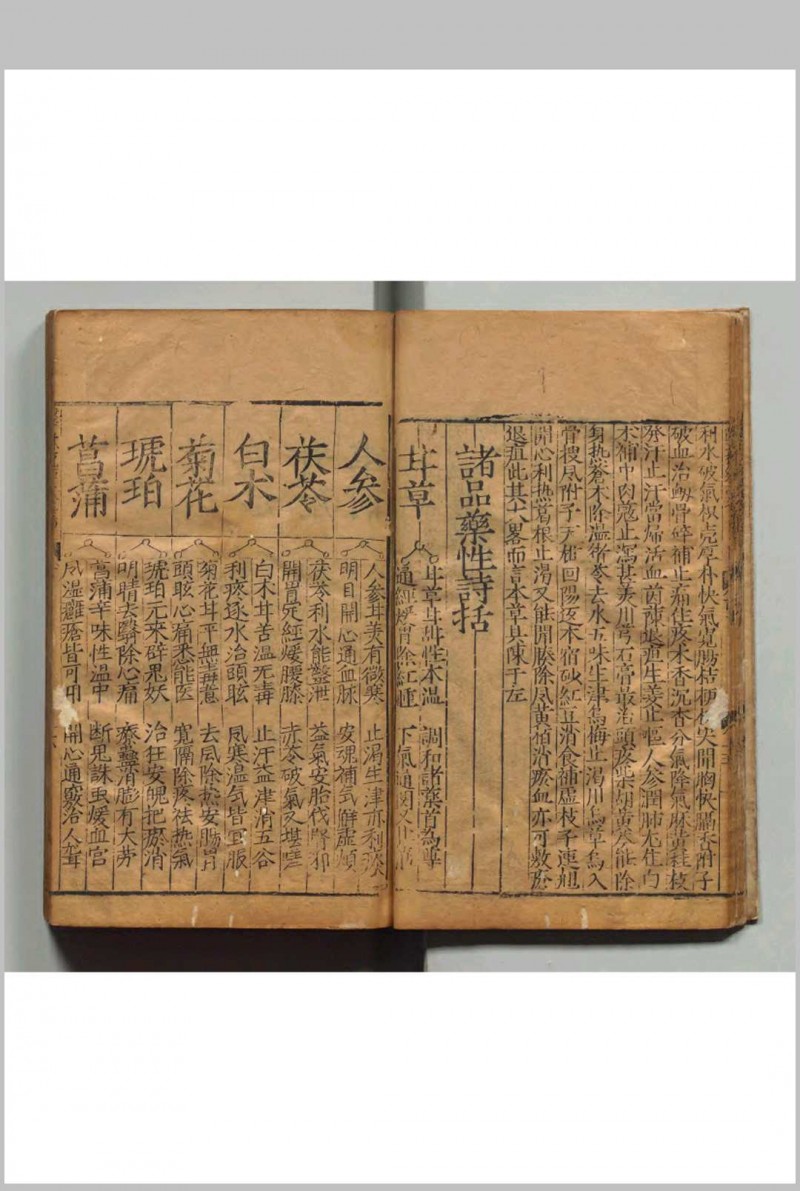 利水破氣枳壳厚朴快氣寬腸桔梗枳失開胸快膈香附子
破血治
骨碎補止痛住疼木香沉香分氣降氣麻黄桂枝
發汗止汗當歸活血茵蔯退
生姜止嘔人参潤肺
白
术補中肉蔻止瀉甚美川芎石膏最治頭疼柴胡黄芩能除
身热蒼术除濕
苓去水五味生津烏梅止渴川烏草烏入
骨搜风附子天雄回陽返本宿砂紅豆消食補虛枝子連翹
開心利热葛根止渴又能開
除风黄柏消瘀血亦可敷瘡
退疽此其大畧而言本草具陳于左
諸品藥性詩括
甘草
甘草甘緋性本温 調和諸藥首為尊
通經煖胃除紅腫 下氣通
又止
人参
人参甘美有微寒 止渴生津亦利痰
明目開心通血脉 安魂補
觧虛煩
茯苓
茯苓利水能盤泄 益氣安胎伐腎邪
開胃定經煖腰膝 赤苓破氣又堪
白术
白术甘苦温无毒 止汗益津消五谷
利疼逐水治頭眩 风寒温气皆宜服
菊花
菊花甘平無
意 去风除热安腸胃
頭眩心痛悉能医 寬隔除疼袪热氣
琥珀
琥珀元來辟鬼妖 治狂安魄把瘀消
明晴去翳除心痛 療蠱消膨有大
菖蒲
菖蒲辛味性温中 断鬼誅虫煖血宫
风湿癰瘡皆可用 開心通竅治人聾